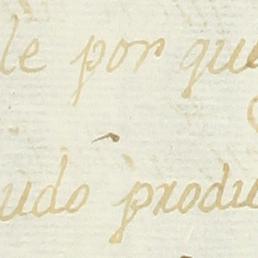 le por que
udo produ